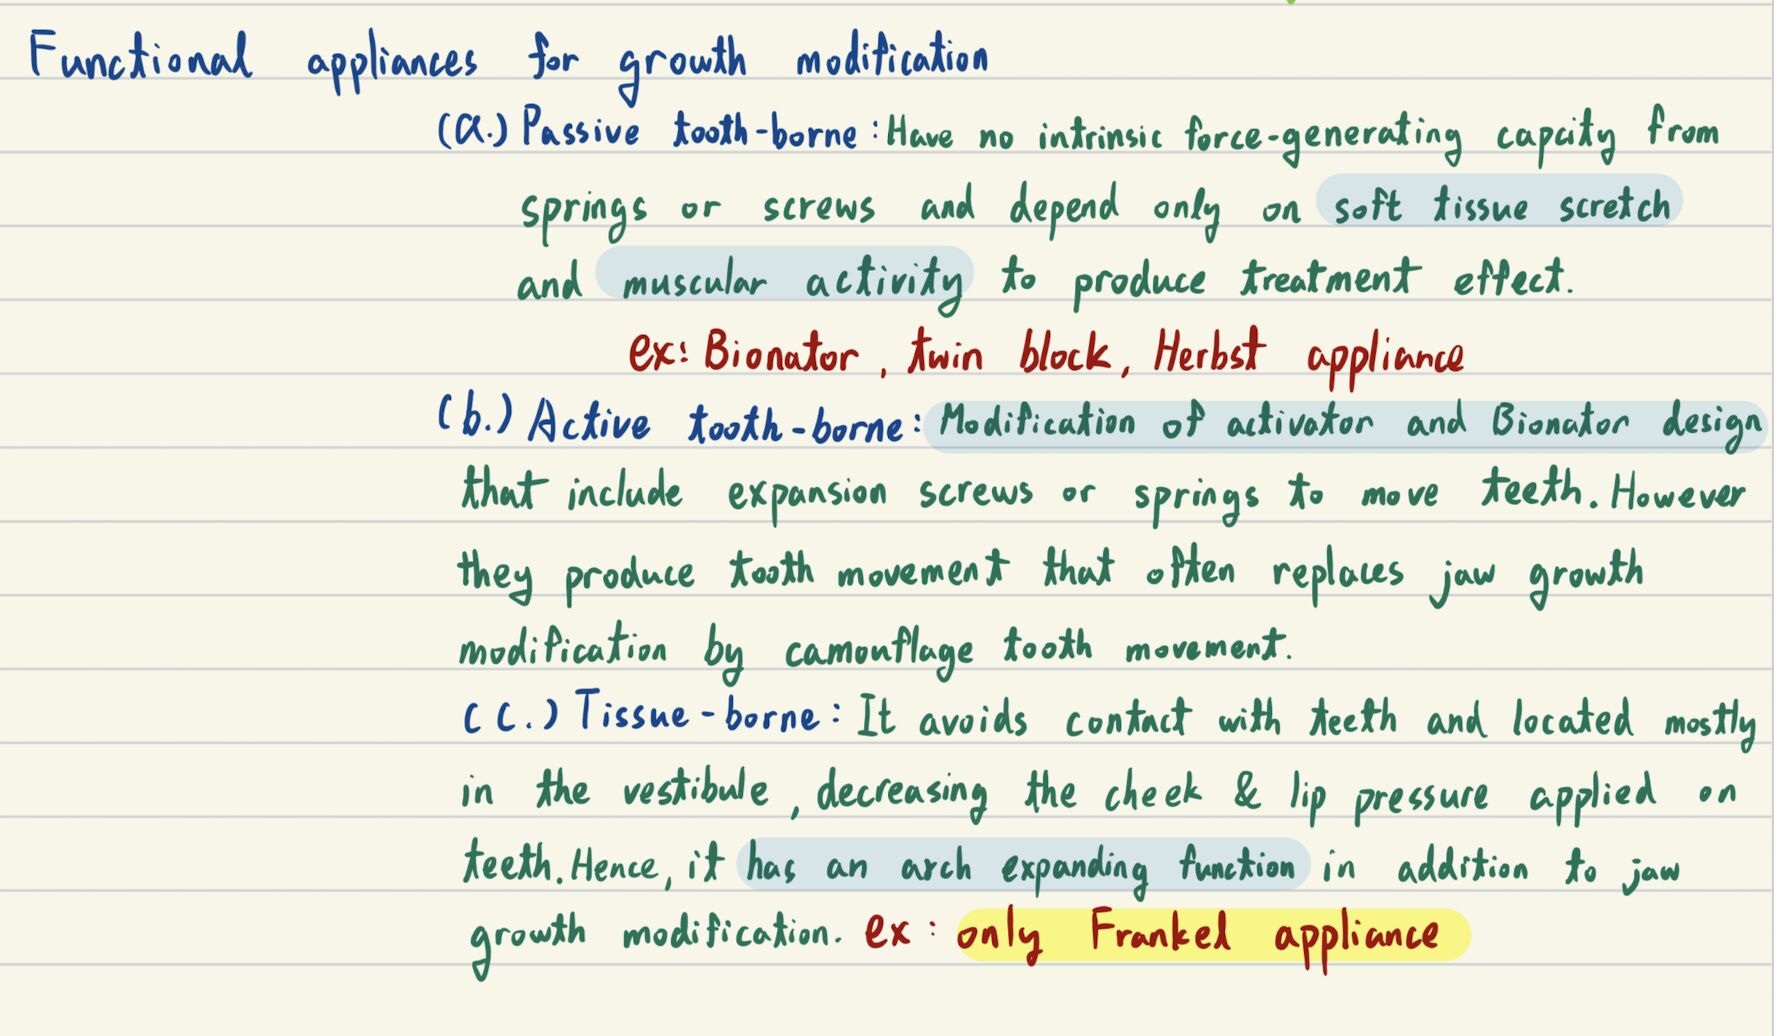 Functional appliances for growth modification
(a.) Passive tooth-borne : Have no intrinsic force-generating capcity from
springs or screws and depend only on soft tissue scretch
and muscular activity to produce treatment effect.
ex: Bionator, twin block, Herbst appliance
(b.) Active tooth-borne: Modification of activator and Bionator design
that include expansion screws or springs to move teeth. However
they produce tooth movement that often replaces jaw growth
modification by camouflage tooth movement.
(c.) Tissue-borne: It avoids contact with teeth and located mostly
in the vestibule, decreasing the cheek & lip pressure applied on
teeth. Hence, it has an arch expanding function in addition to jaw
growth modification. ex: only Frankel appliance